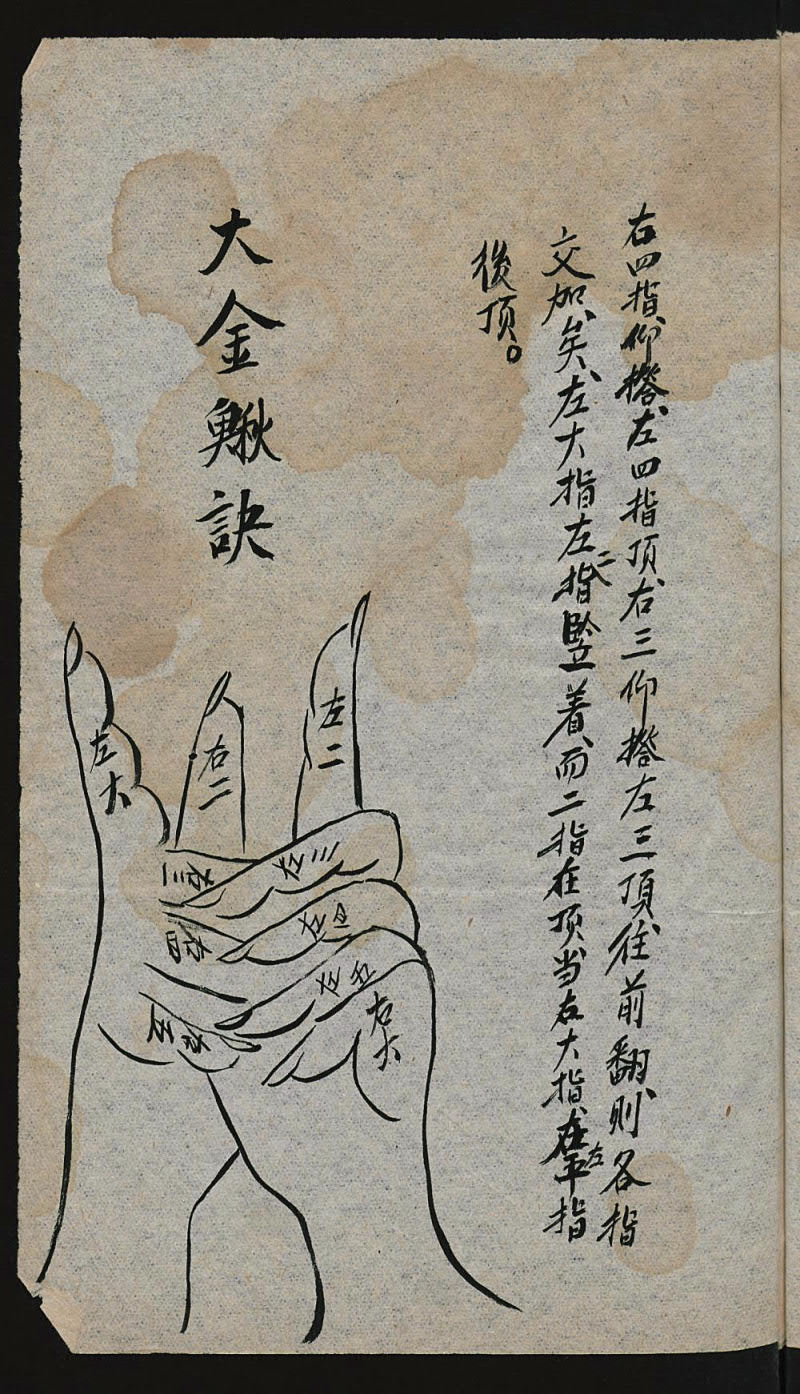 右四指仰撘左四指頂右三仰撘左三頂往前翻則各指
交加矣左大指左二指竪着而二指在顶当右大指左平指
後顶。
大金鰍訣
左大
右二
左二
右三
左三
右四
左四
右五
左五
右大